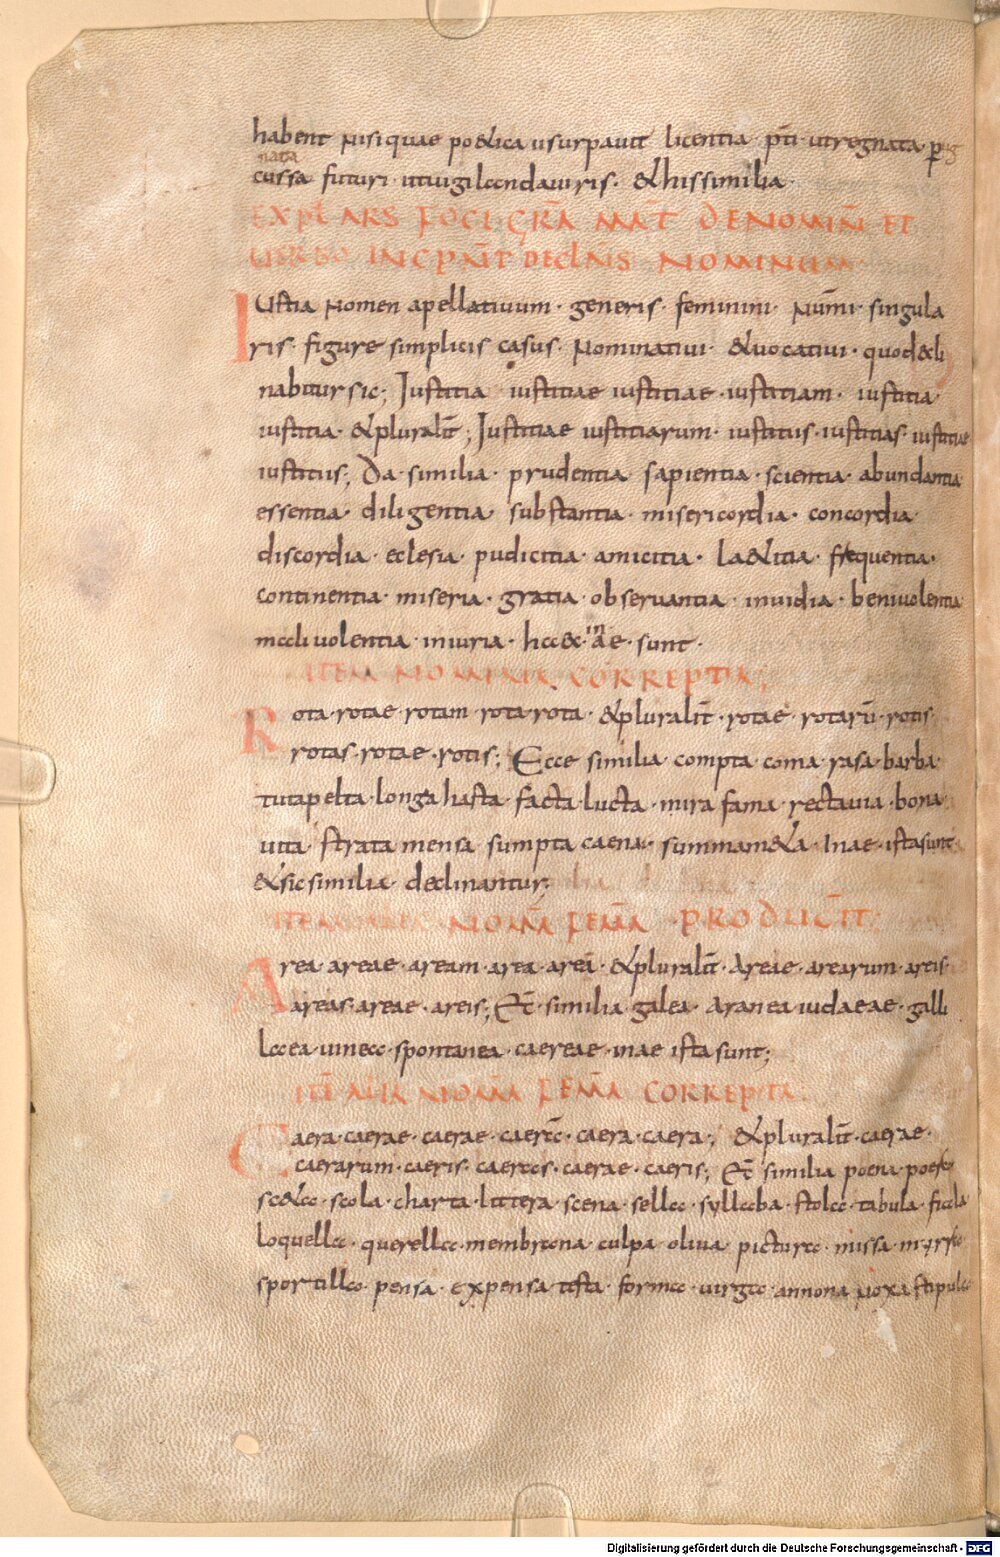 habent Nisi quae po&ica usurpauit licentia p̄ti ut regnata p̱
nata
cussa futuri ut iugilanda uiris · & his similia ·
EXPL̄ ARS FOCI GRĀ MAT̄ DE NOMIÑ ET
UERBO INCPIÑT DECLNIS NOMINUM
IUstia Nomen apellatiuum · generis · feminini · Num̄i · singula
ris · figure simplicis casus · Nominatiui · & uocatiui · quod decli
nabitur sic; Iustitia iustitiae iustitiae · iustitiam · iustitia ·
iustitia · & pluralit̄; Iustitiae iustitiarum · iustitiis · iustitias · iustitiae
iustitiis; Da · similia · prudentia · sapientia · scientia · abundantia
essentia · diligentia · substantia · misericordia · concordia
discordia · eclesia · pudicitia · amicitia · la&itia · frequentia ·
continentia · miseria · gratia · obseruantia · inuidia · beniuolentia
maliuolentia · iniuria · haec & in ae · sunt ·
ITEM NOMINA CORREPTA;
Rota · rotae · rotam · rota · rota · & pluralit̄ · rotae · rotarū · rotis
rotas · rotae · rotis; Ecce similia · compta · coma · rasa · barba ·
tuta pelta · longa hasta · facta lucta · mira fama · recta uia · bona
uita · strata mensa · sumpta caena · summa m&a · In ae · ista sunt
& sic similia · declinantur;
ITEM NOMĀ FEMĀ · PRODUCIT̄;
Area · areae · aream · area · areā · & pluralit̄ · Areae · arearum · areis
areas · areae · areis; Et̄ · similia · galea · aranea iudaeae · galli
laea · uinea · spontanea · caereae · in ae ista sunt;
ITĒ ALIA NOMĀ FEMĀ CORREPTA ·
Caera · caerae · caerae · caerā · caera · caera; & pluralit̄ · caerae ·
caerarum · caeris · caeras · caerae · caeris; Et̄ similia poena · poeta
s&a · scola · charta · littera · scena · sella · syllaba · stola · tabula · ficela
loquella · querella · membrana · culpa · oliua · pictura · missa ·
sportilla · pensa · expensa testa · forma · uirga · annona Noxa stipula
Digitalisierung gefördert durch die Deutsche Forschungsgemeinschaft - DFG